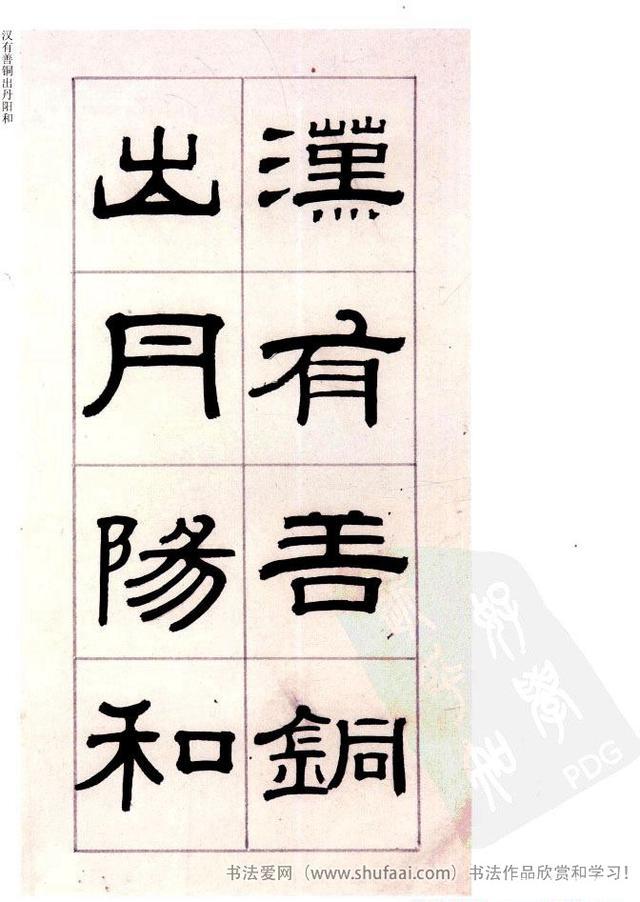 汉有善铜出丹阳和
漢有善銅
出丹陽和
PDG
书法爱网（www.shufaai.com）书法作品欣赏和学习！